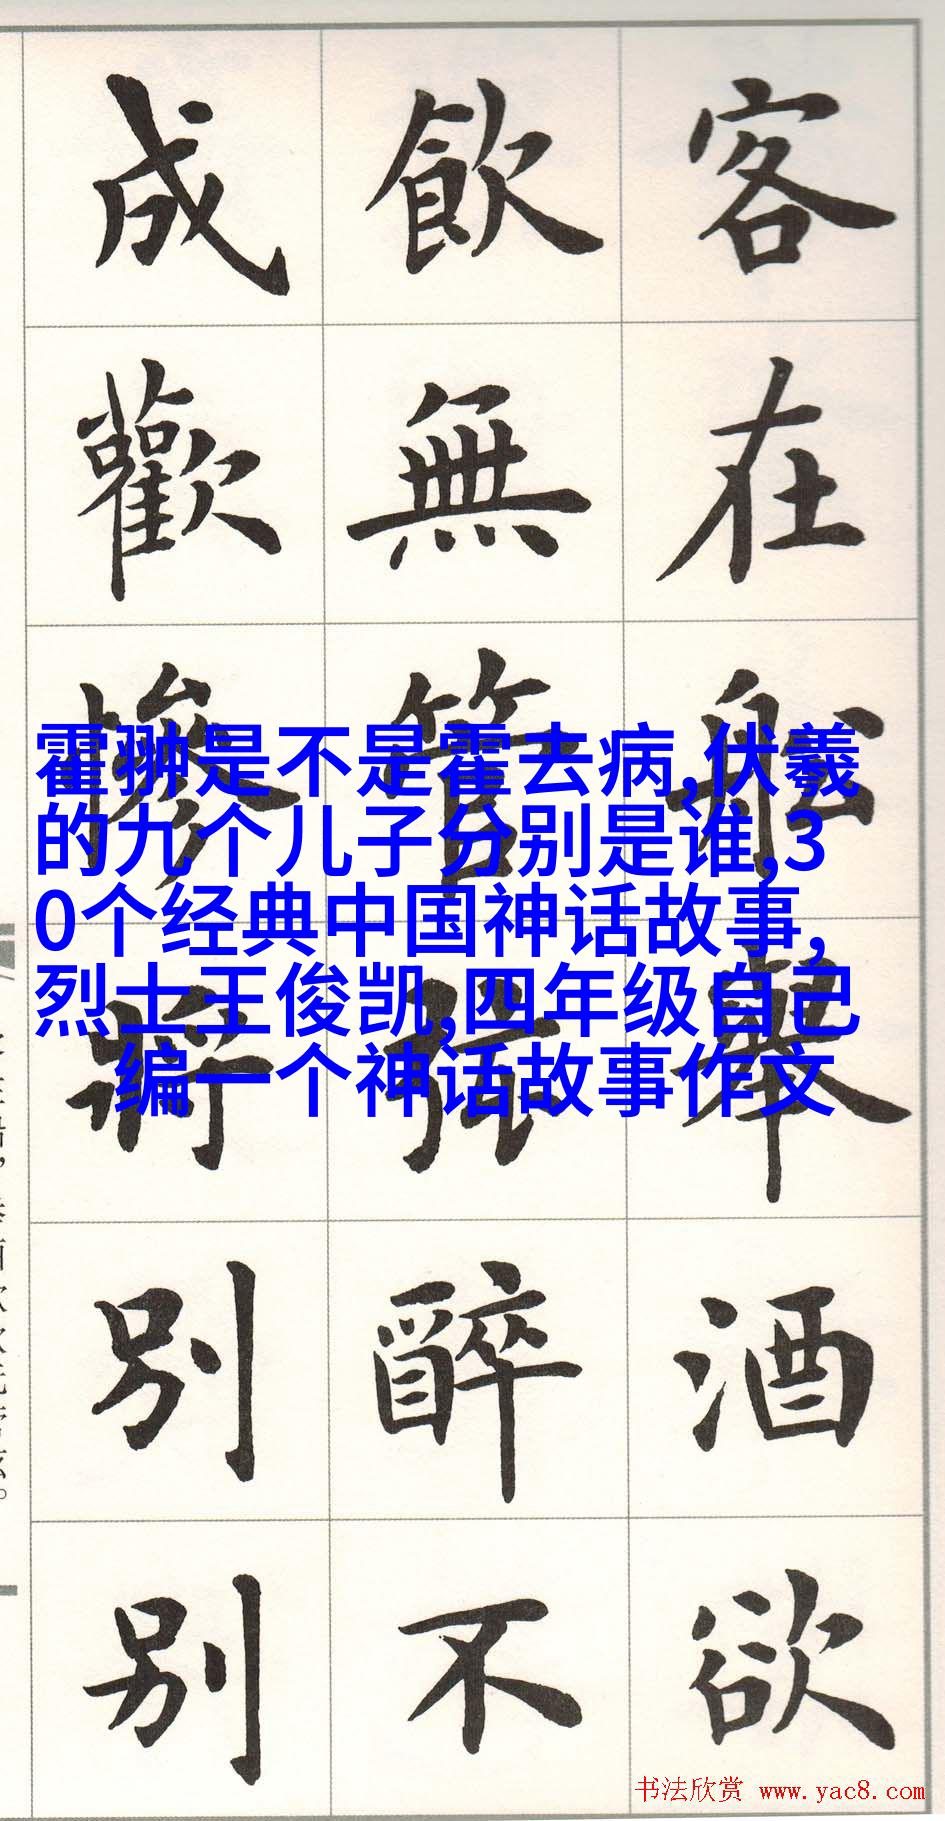 客在船舉酒欲
飲無管弦醉不
成歡慘將別別
霍翀是不是霍去病,伏羲
的九个儿子分别是谁,3
0个经典中国神话故事,
烈士王俊凯,四年级自己
编一个神话故事作文
书法欣赏 www.yac8.com